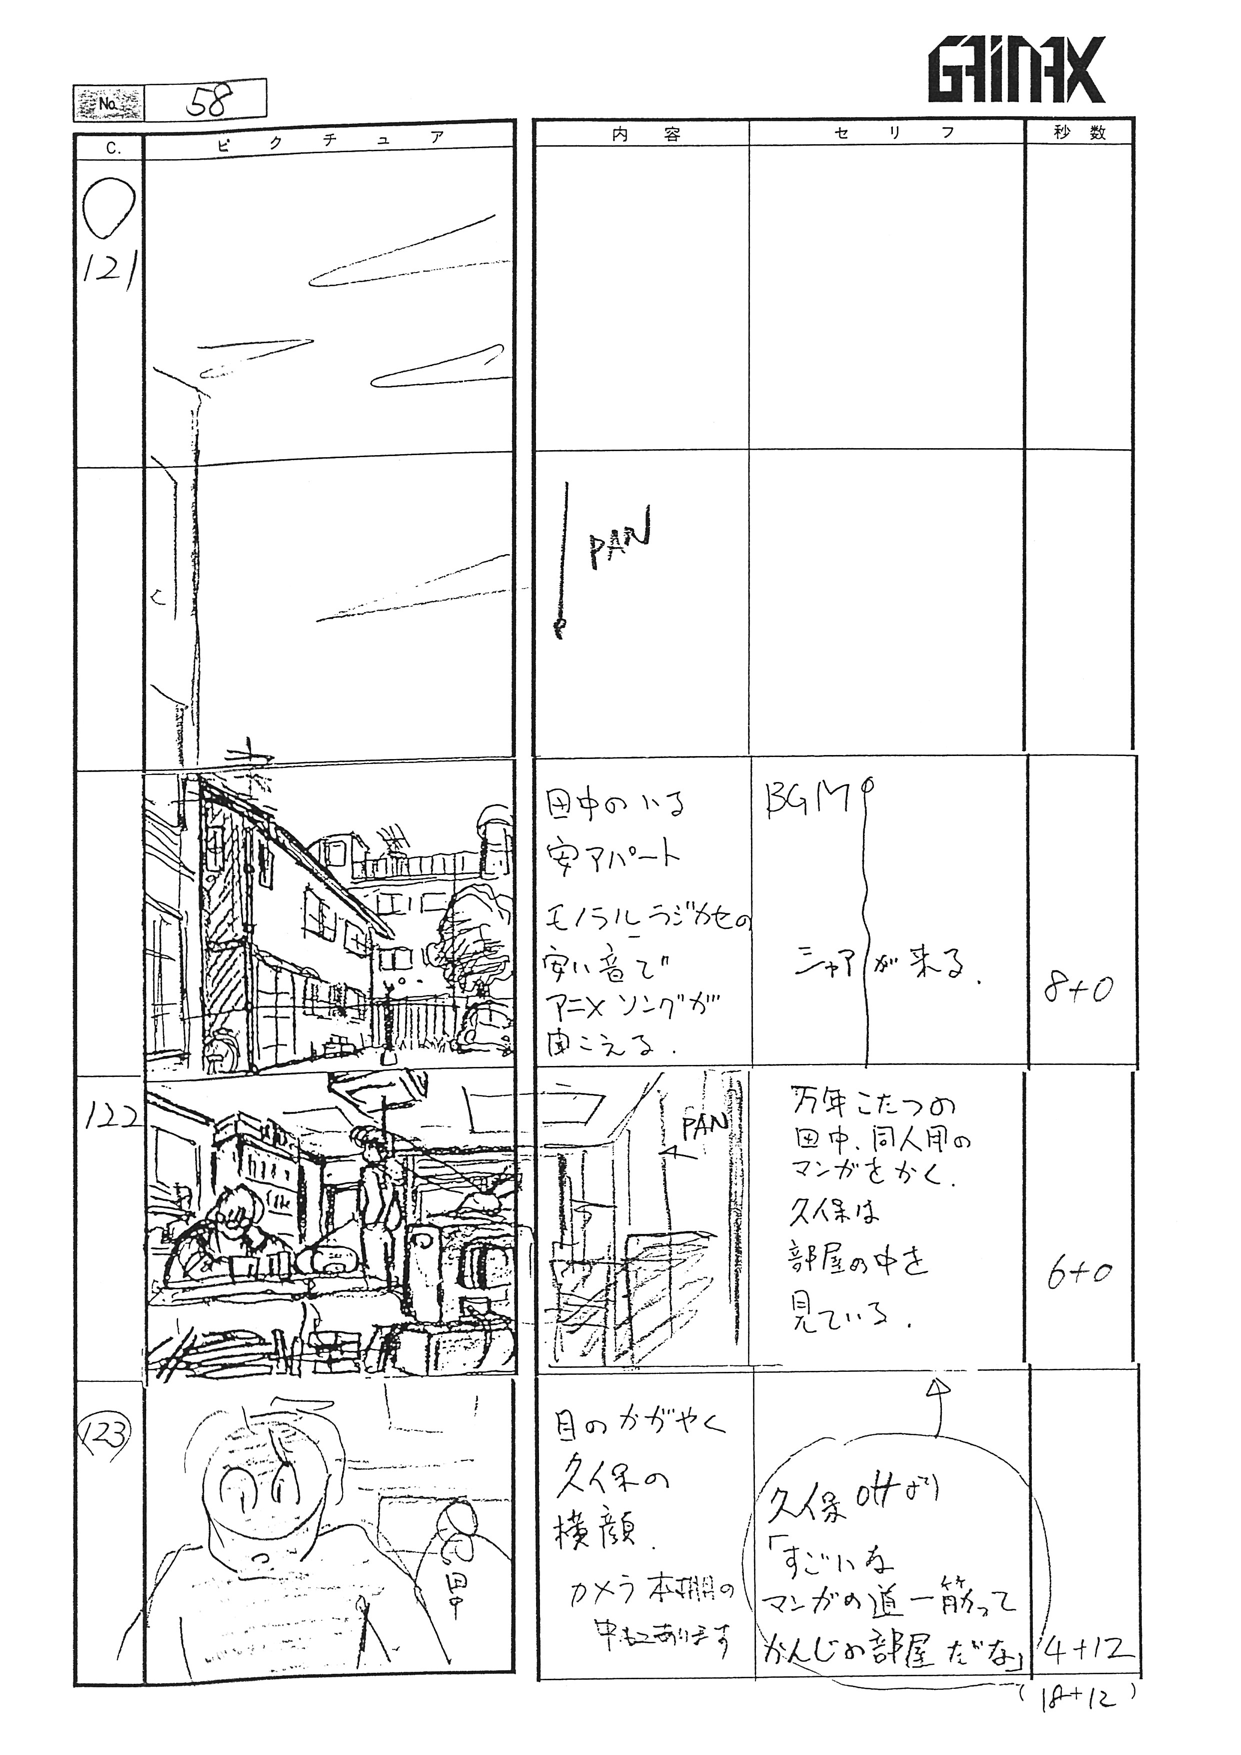 GAINAX
No. 58
C. ピクチュア 内容 セリフ 秒数
121
PAN
田中のいる
安アパート
モノラルラジカセの
安い音で
アニメソングが
聞こえる.
BGM
シャアが来る.
8+0
122
PAN
万年こたつの
田中、同人用の
マンガをかく.
久保は
部屋の中を
見ている.
6+0
123
田中
目のかがやく
久保の
横顔.
カメラ本棚の
中にあります
久保offより
「すごいな
マンガの道一筋って
かんじの部屋だな」
4+12
(18+12)